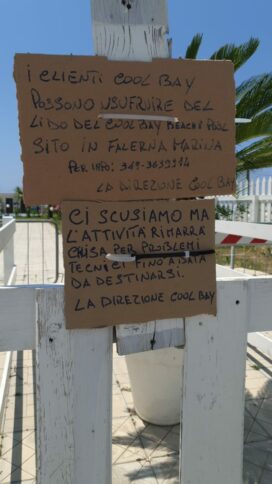 I CLIENTI COOL BAY
POSSONO USUFRUIRE DEL
LIDO DEL COOL BAY BEACH & POOL
SITO IN FALERNA MARINA
PER INFO: 349-3639914
LA DIREZIONE COOL BAY
CI SCUSIAMO MA
L'ATTIVITÀ RIMARRÀ
CHIUSA PER PROBLEMI
TECNICI FINO A DATA
DA DESTINARSI.
LA DIREZIONE COOL BAY